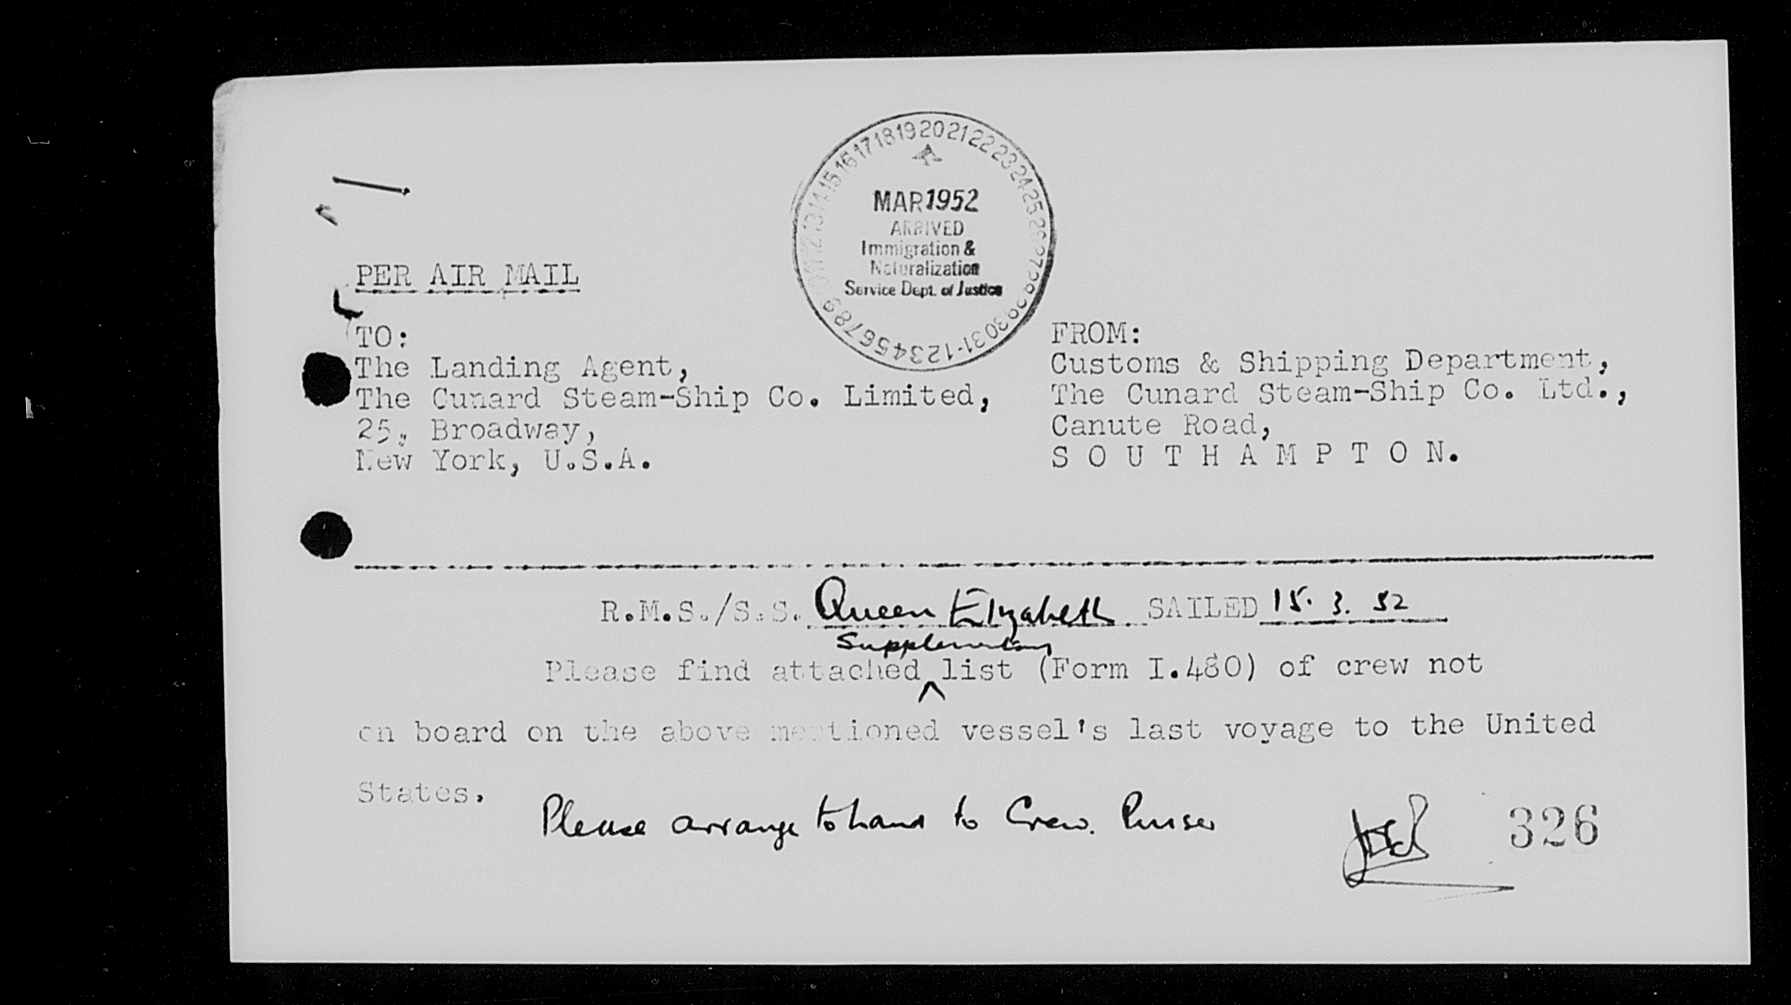 171819202122232425
MAR 1952
ARRIVED
Immigration &
Naturalization
Service Dept. of Justice
PER AIR MAIL
TO:
The Landing Agent,
The Cunard Steam-Ship Co. Limited,
25, Broadway,
New York, U.S.A.
FROM:
Customs & Shipping Department,
The Cunard Steam-Ship Co. Ltd.,
Canute Road,
S O U T H A M P T O N.
R.M.S./S.S. Queen Elizabeth SAILED 15. 3. 52
Supplementary
Please find attached list (Form I.480) of crew not
on board on the above mentioned vessel's last voyage to the United
States.
Please arrange to hand to Crew. Purser
326